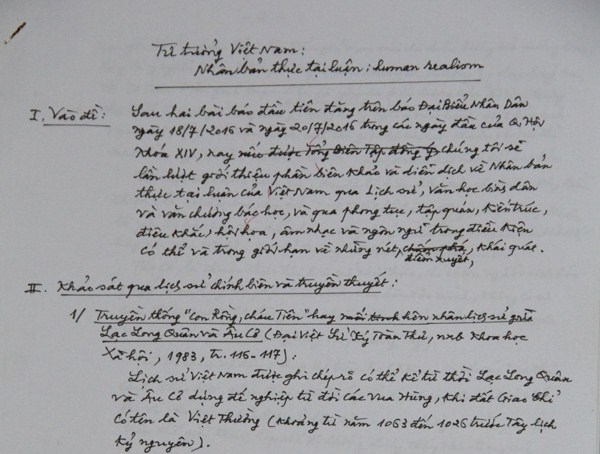 Tư tưởng Việt Nam:
Nhân bản thực tại luận: human realism
I. Vào đề: Sau hai bài báo đầu tiên đăng trên báo Đại Biểu Nhân Dân
ngày 18/7/2016 và ngày 20/7/2016 trong các ngày đầu của Q. Hội
khóa XIV, nay nếu được Tổng Biên Tập đồng ý chúng tôi sẽ
lần lượt giới thiệu phần biên khảo và diễn dịch về Nhân bản
thực tại luận của Việt Nam qua Lịch sử, văn học bình dân
và văn chương bác học, và qua phong tục, tập quán, kiến trúc,
điêu khắc, hội họa, âm nhạc và ngôn ngữ trong điều kiện
có thể và trong giới hạn về những nét chấm phá, khái quát.
điểm xuyết,
II. Khảo sát qua lịch sử chính biên và truyền thuyết:
1/ Truyền thống "Con Rồng, cháu Tiên" hay mối tình hôn nhân lịch sử giữa
Lạc Long Quân và Âu Cơ (Đại Việt Sử Ký Toàn Thư, nxb Khoa học
Xã hội, 1983, tr. 116-117):
Lịch sử Việt Nam được ghi chép rõ có thể kể từ thời Lạc Long Quân
và Âu Cơ dựng đế nghiệp từ đời các Vua Hùng, khi đất Giao Chỉ
có tên là Việt Thường (khoảng từ năm 1063 đến 1026 trước Tây lịch
kỷ nguyên).